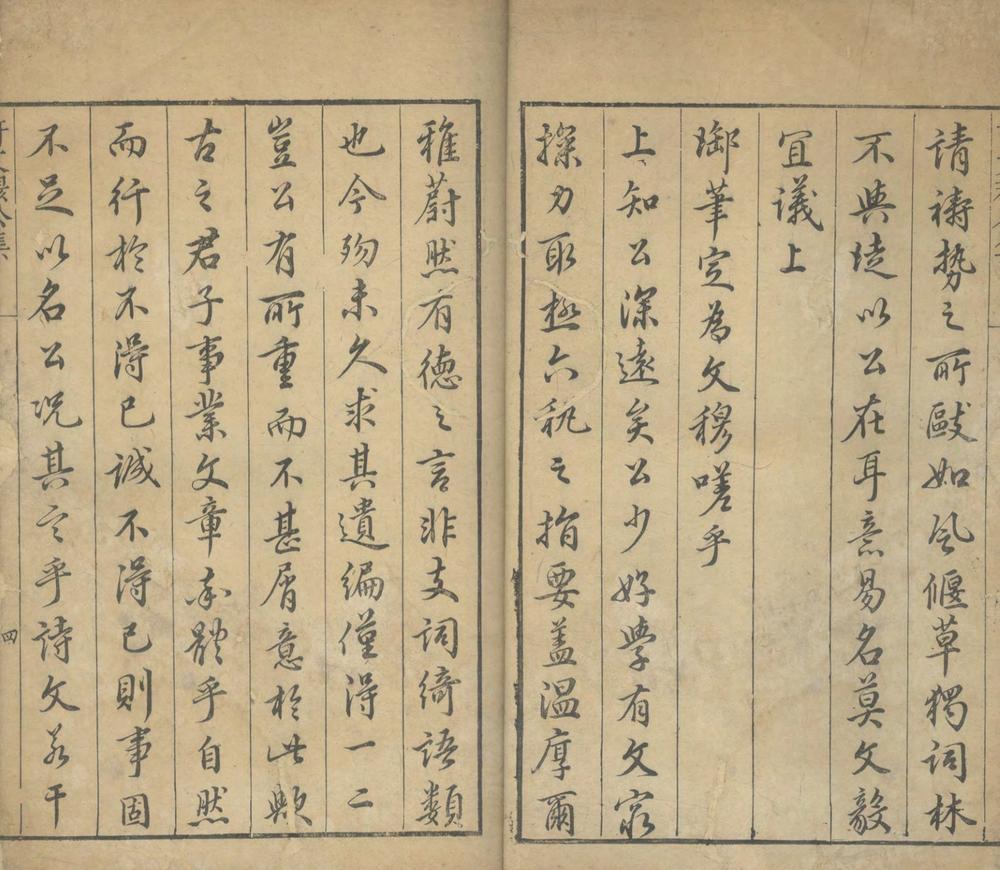 請禱勢之所敺如風偃草獨詞林
不與徒以公在耳意易名莫文毅
宜議上
御筆定為文穆嗟乎
上知公深遠矣公少好學有文家
操力取極六秇之指要盖温厚爾
雅蔚然有德之言非支詞綺語類
也今歾未久求其遺編僅得一二
豈公有所重而不甚屑意於此歟
古之君子事業文章本體乎自然
而行於不得已誠不得已則事固
不足以名公况其言乎詩文若干
四